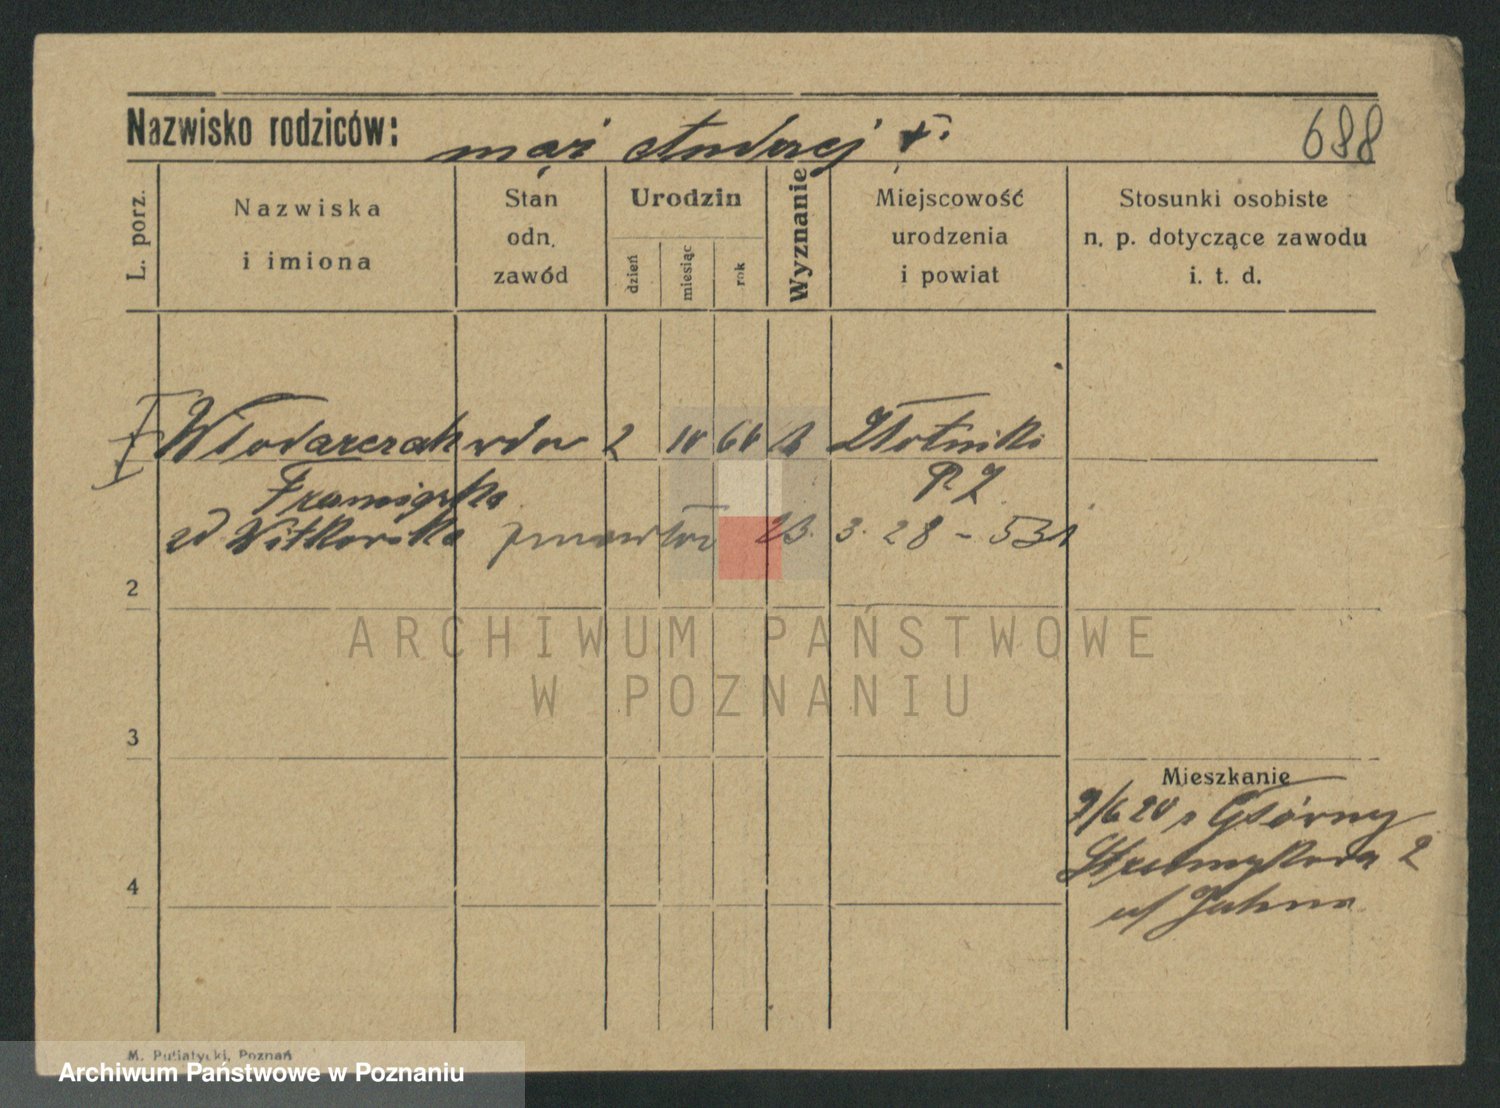 Nazwisko rodziców: mąż Andrzej †.
688
L. porz.
Nazwiska
i imiona
Stan
odn.
zawód
Urodzin
dzień
miesiąc
rok
Wyznanie
Miejscowość
urodzenia
i powiat
Stosunki osobiste
n. p. dotyczące zawodu
i. t. d.
Włodarczak wdow 2 10 60 Złotniki
Franciszka P. Z.
zd Witkowska zmarła 23. 3. 28 - 531
2
ARCHIWUM PAŃSTWOWE
W POZNANIU
3
Mieszkanie
9/6 20 Górny
2
4
M. Putiatycki, Poznań
Archiwum Państwowe w Poznaniu